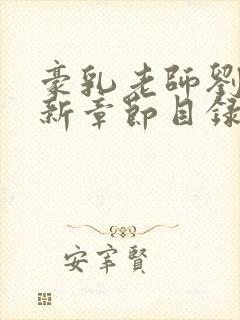 豪乳老師劉
新章節目錄
安宰賢